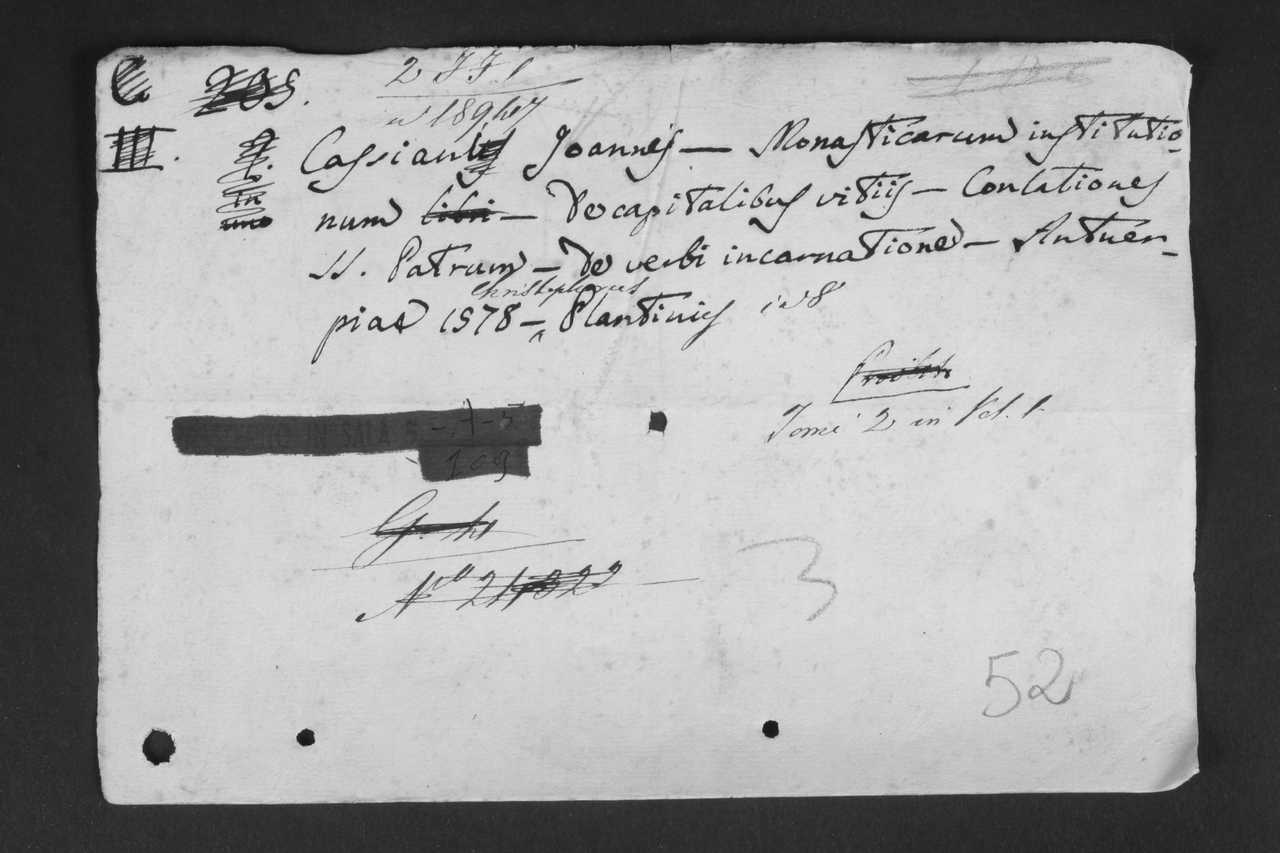 C. 205.
III.
2.
in
uno
Cassianus Joannes — Monasticarum institutio-
num libri — De capitalibus vitiis — Conlationes
SS. Patrum — De verbi incarnatione — Antuer-
christophorus
piae 1578 — ^ Plantinus in 8
Tomi 2 in Vol. 1.
IN SALA 5 - 7 - 5
109
Nº 21822
3
52